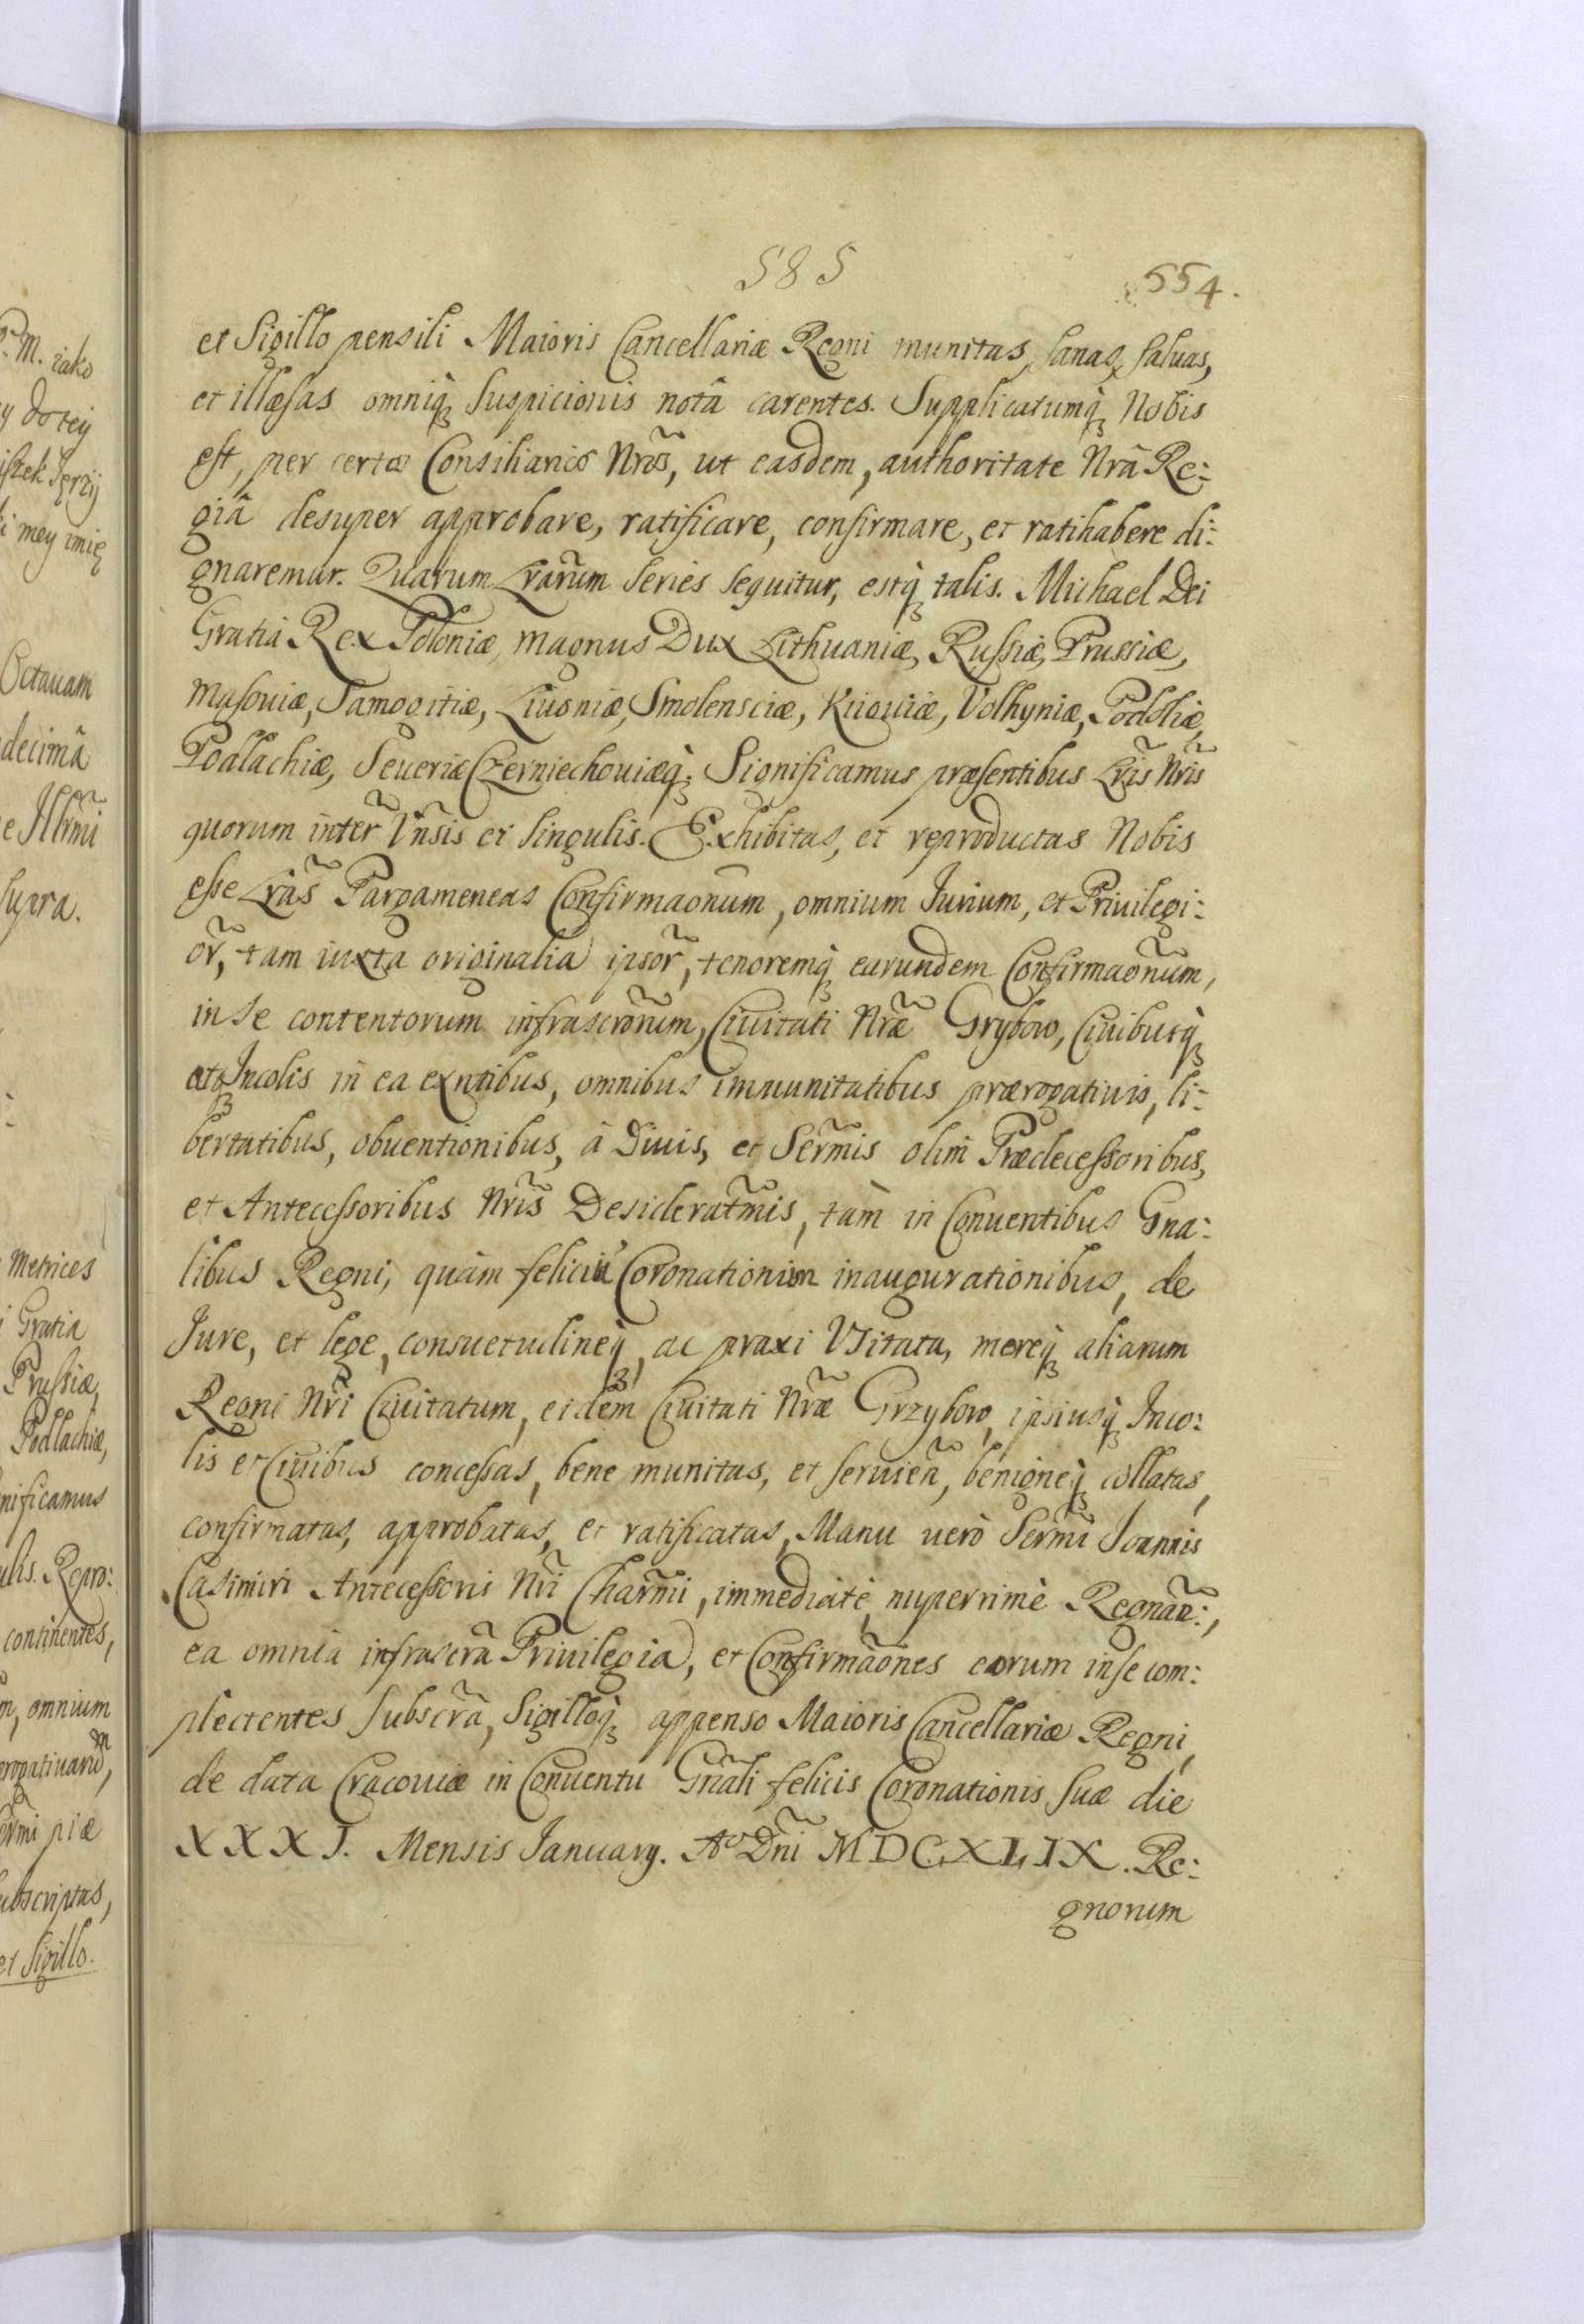 585
554.
et Sigillo pensili Maioris Cancellariæ Regni munitas, sanas, saluas,
et illæsas omniq; suspicionis notâ carentes. Supplicatumq; Nobis
est, per certos Consiliarios Nr̃os, ut easdem, authoritate Nr̃â Re:
giâ desuper approbare, ratificare, confirmare, et ratihabere di:
gnaremur. Quarum Lr̃arum series sequitur, estq; talis. Michael Dei
Gratia Rex Poloniæ, magnus Dux Lithuaniæ, Russiæ, Prussiæ,
Masouiæ, Samogitiæ, Liuoniæ, Smolensciæ, Kiiouiæ, Volhyniæ, Podoliæ,
Podlachiæ, Seueriæ Czerniechouiæq;. Significamus præsentibus Lr̃is Nr̃is
quorum inter̃ Vñsis et singulis. Exhibitas, et reproductas Nobis
esse Lr̃as Pargameneas Confirmaonũm, omnium Jurium, et Priuilegi:
or̃, tam iuxta originalia ipsor̃, tenoremq; earundem Confirmaonũm,
in se contentorum infrascrõrum, Ciuitati Nr̃æ Grybow, Ciuibusq;
atq; Incolis in ea exñtibus, omnibus immunitatibus prærogatiuis, li:
bertatibus, obuentionibus, à Diuis, et Serm̃is olim Prædecessoribus,
et Antecessoribus Nr̃is Desideratm̃is, tam in Conuentibus Gna:
libus Regni, quàm felicium Coronationum inaugurationibus, de
Jure, et lege, consuetudineq;, ac praxi Vsitata, moreq; aliarum
Regni Nr̃i Ciuitatum, eidem Ciuitati Nr̃æ Grzybow, ipsiusq; Inco:
lis et Ciuibus concessas, bene munitas, et seruien̄, benigneq; collatas,
confirmatas, approbatas, et ratificatas, Manu uerò Serm̃i Joannis
Casimiri Antecessoris Nr̃i Charm̃i, immediatè, nuperrimè Regnan̄:,
ea omnia infrascrã Priuilegia, et Confirmãones eorum in se com:
plectentes subscrã, Sigilloq; appenso Maioris Cancellariæ Regni,
de data Cracouiæ in Conuentu Gñali felicis Coronationis suæ die
XXXI. Mensis January. Aº Dñi MDCXLIX. Re:
gnorum